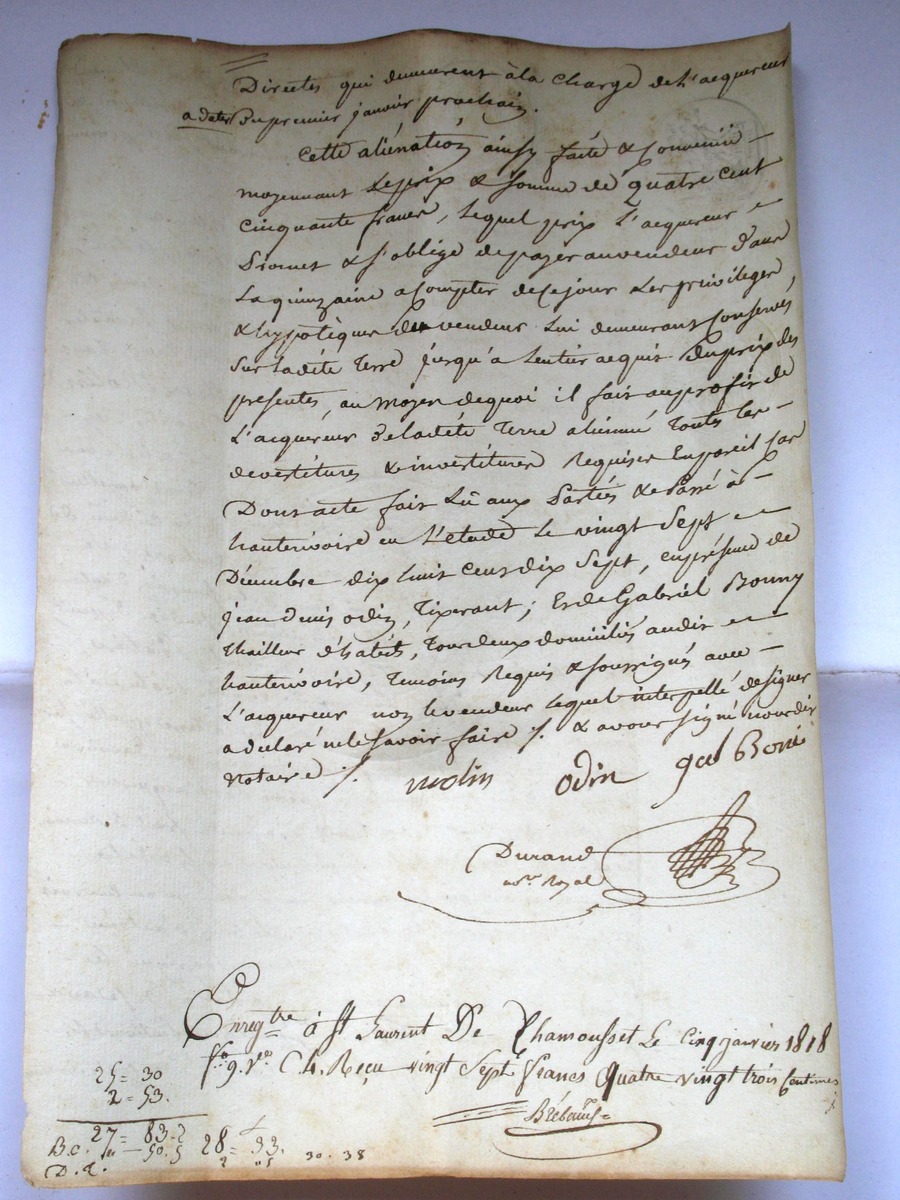 Directes qui demeurent à la charge de L'acquereur
a dater Du premier janvier prochain.
Cette aliénation ainsy faite & Convenue
moyennant Le prix & Somme de quatre cent
Cinquante francs, Lequel prix L'acquereur
Promet & s'oblige de payer au vendeur Dans
La quinzaine a Compter de Ce jour Les privileges
& hypotèques du vendeur Lui demeurant Conservés
Sur Ladite Terre jusqu'a Lentier acquit Du prix des
presentes, au Moyen de quoi il fait au profit de
L'acquereur De ladite Terre aliénné Toutes Les
devestitures & investitures Requises En pareil Cas
Dont acte fait Lû aux Parties & Passé à
hauterivoire en L'etude Le vingt Sept
Décembre dix huit Cent dix Sept, en présence de
jean Denis odin, Tixerant; Et de Gabriel Bonny
thailleur d'habits, Tous deux domiciliés audit
hauterivoire, Temoins Requis & soussignés avec
L'acquereur non le vendeur Lequel interpellé de signer
a declaré ne le Savoir faire /. & avons signé nous dit
Notaire /. molin odin gal Boni
Durand
no.re Royal
Enreg.tre à St Laurent De Chamousset Le Cinq janvier 1818
f.o 9. v.o C. 4. Reçu vingt Sept francs Quatre vingt trois Centimes
25 = 30
2 = 53.
27 = 83
28 = 33.
30. 38